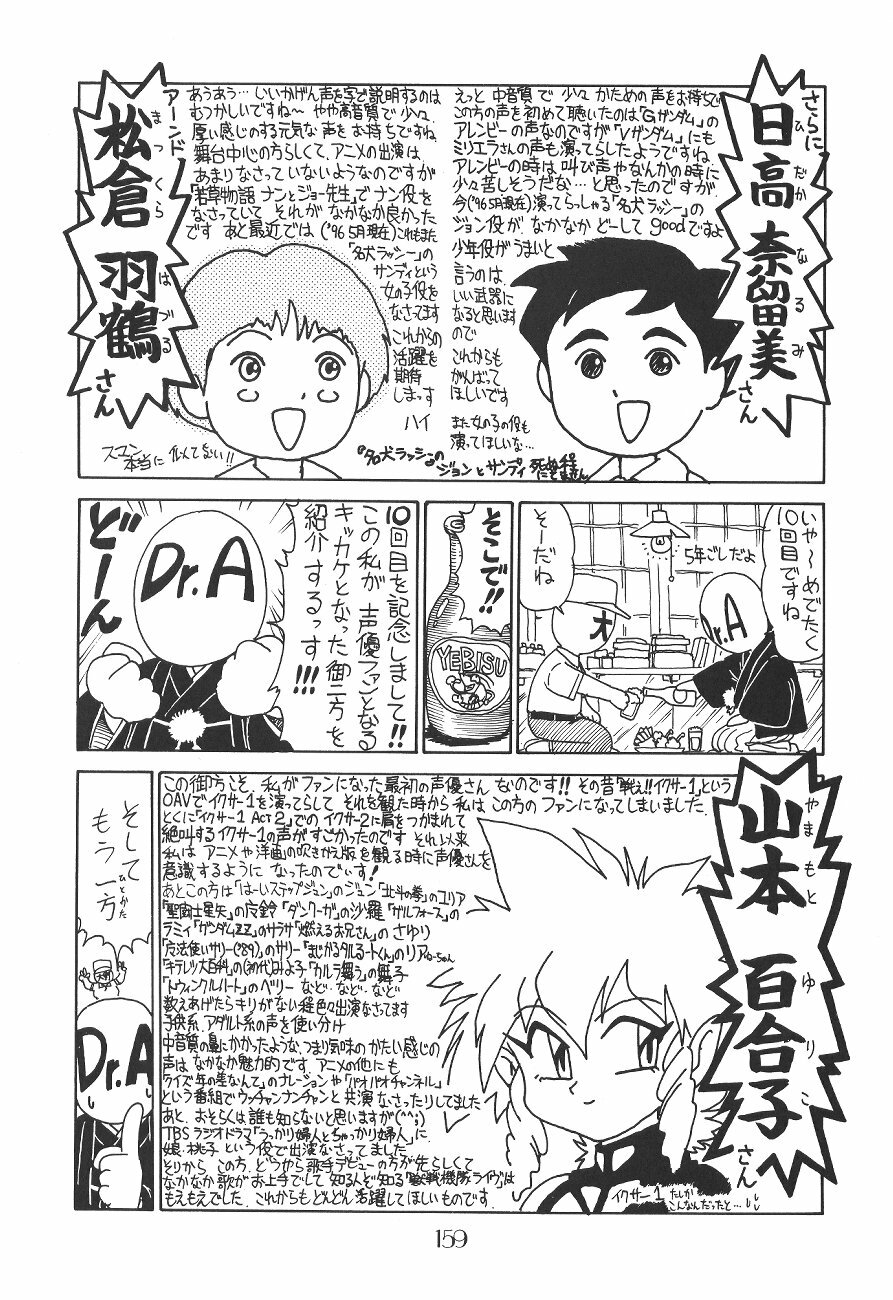 さらに
日高 奈留美さん
ひだか なるみ
えっと 中音質で 少々 かための 声をお持ちで
この方の声を初めて聴いたのは「Gガンダム」の
アレンビーの声なのですが「Vガンダム」にも
ミリエラさんの声も演ってらしたようですね
アレンビーの時は 叫び声やなんかの時に
少々苦しそうだな…と思ったのですが
今('96 5月現在)演ってらっしゃる「名犬ラッシー」の
ジョン役が なかなか どーして goodですよ
少年役がうまいと
言うのは、
いい武器に
なると思います
ので
これからも
がんばって
ほしいです
また女の子の役も
演ってほしいな…
アーンド
松倉 羽鶴さん
まつくら はづる
あうあう… いいかげん声を字で説明するのは
むつかしいですね〜 やや高音質で少々、
厚い感じのする元気な声をお持ちですね
舞台中心の方らしくて、アニメの出演は、
あまりなさっていないようなのですが
「若草物語 ナンとジョー先生」でナン役を
なさっていて それが なかなか良かった
です あと最近では('96 5月現在)これもまた
「名犬ラッシー」の
サンディという
女の子役を
なさってます
これからの
活躍を
期待
しまっす
ハイ
スマン
本当に 似てない!!
「名犬ラッシー」の
ジョンとサンディ 死ぬ程
にてませぇん
いや〜めでたく
10回目ですね
5年ごしだよ
そーだね
Dr.A
そこで!!
YEBISU
10回目を記念しまして!!
この私が 声優ファンとなる
キッカケとなった御二方を
紹介するっす!!!
Dr.A
どーん
山本 百合子さん
やまもと ゆりこ
この御方こそ、私がファンになった最初の声優さん なのです!! その昔「戦え!!イクサー1」という
OAVでイクサー1を演ってらして それを観た時から 私は この方の ファンになってしまいました
とくに「イクサー1 Act2」での イクサー2に肩をつかまれて
絶叫するイクサー1の声がすごかったのです それ以来
私は アニメや洋画の吹きかえ版を観る時に声優さんを
意識するように なったのでぃす!
あとこの方は「はーいステップジュン」のジュン「北斗の拳」のユリア
「聖闘士星矢」の「ダンクーガ」の沙羅「ガルフォース」の
ラミィ「ガンダムZZ」のサラサ「燃えるお兄さん」の さゆり
「魔法使いサリー('89)」のサリー「まじかるタルるートくん」のリアローちゃん
「キテレツ大百科」の(初代)みよ子「カルラ舞う」の舞子
「トウィンクルハート」のベリー など…など…など
数えあげたらキリがない程色々出演なさってます
子供系、アダルト系の声を使い分け
中音質の量にかかったような、つまり気味の かたい感じの
声は なかなか魅力的です アニメの他にも
「クイズ年の差なんて」のナレーションや「パオパオチャンネル」
という番組で ウッチャンナンチャンと 共演 なさったりしてました
あと、おそらくは 誰も知らないと思いますが(^^;)
TBS ラジオドラマ「うっかり婦人とちゃっかり婦人」に
娘、桃子 という役で出演 なさってました
それから この方、どうやら歌手デビューの方が先らしくて
なかなか歌がお上手でして 知る人ぞ知る「獣戦機隊ライヴ」は
もえもえでした これからもどんどん活躍してほしいものです
イクサー1 たしか
こんなんだったと…
そして
もう一方
ひとかた
Dr.A
159